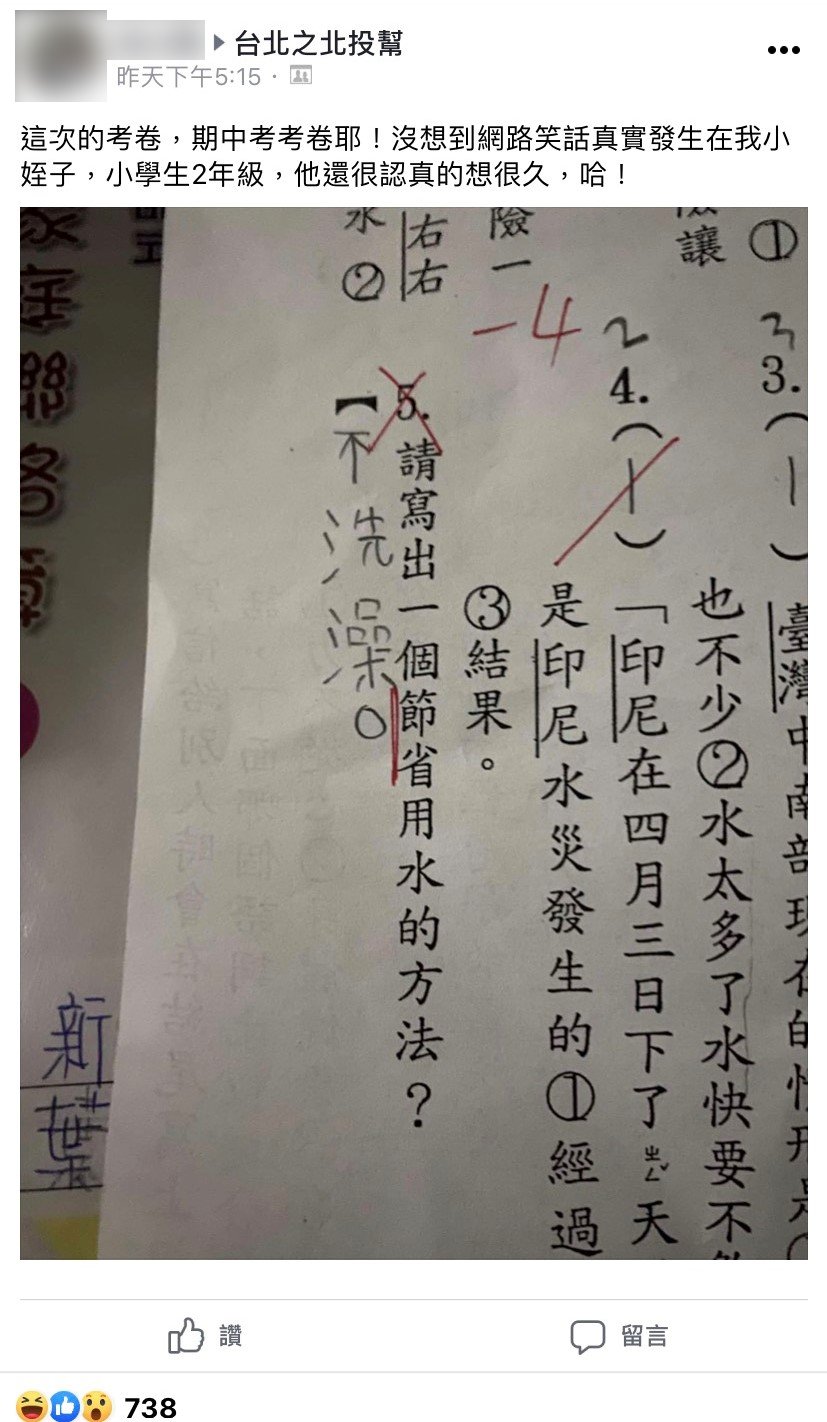 台北之北投幫
昨天下午5:15
這次的考卷，期中考考卷耶！沒想到網路笑話真實發生在我小
姪子，小學生2年級，他還很認真的想很久，哈！
①
讓
3
3.（1）臺灣中南部現在的情形是
也不少②水太多了水快要不
2
4.（1）「印尼在四月三日下了ㄓㄥˇ天
是印尼水災發生的①經過
險一
③結果。
-4
右右
5.請寫出一個節省用水的方法？
②
【不洗澡。
家庭聯絡簿
新
葉
讚
留言
738